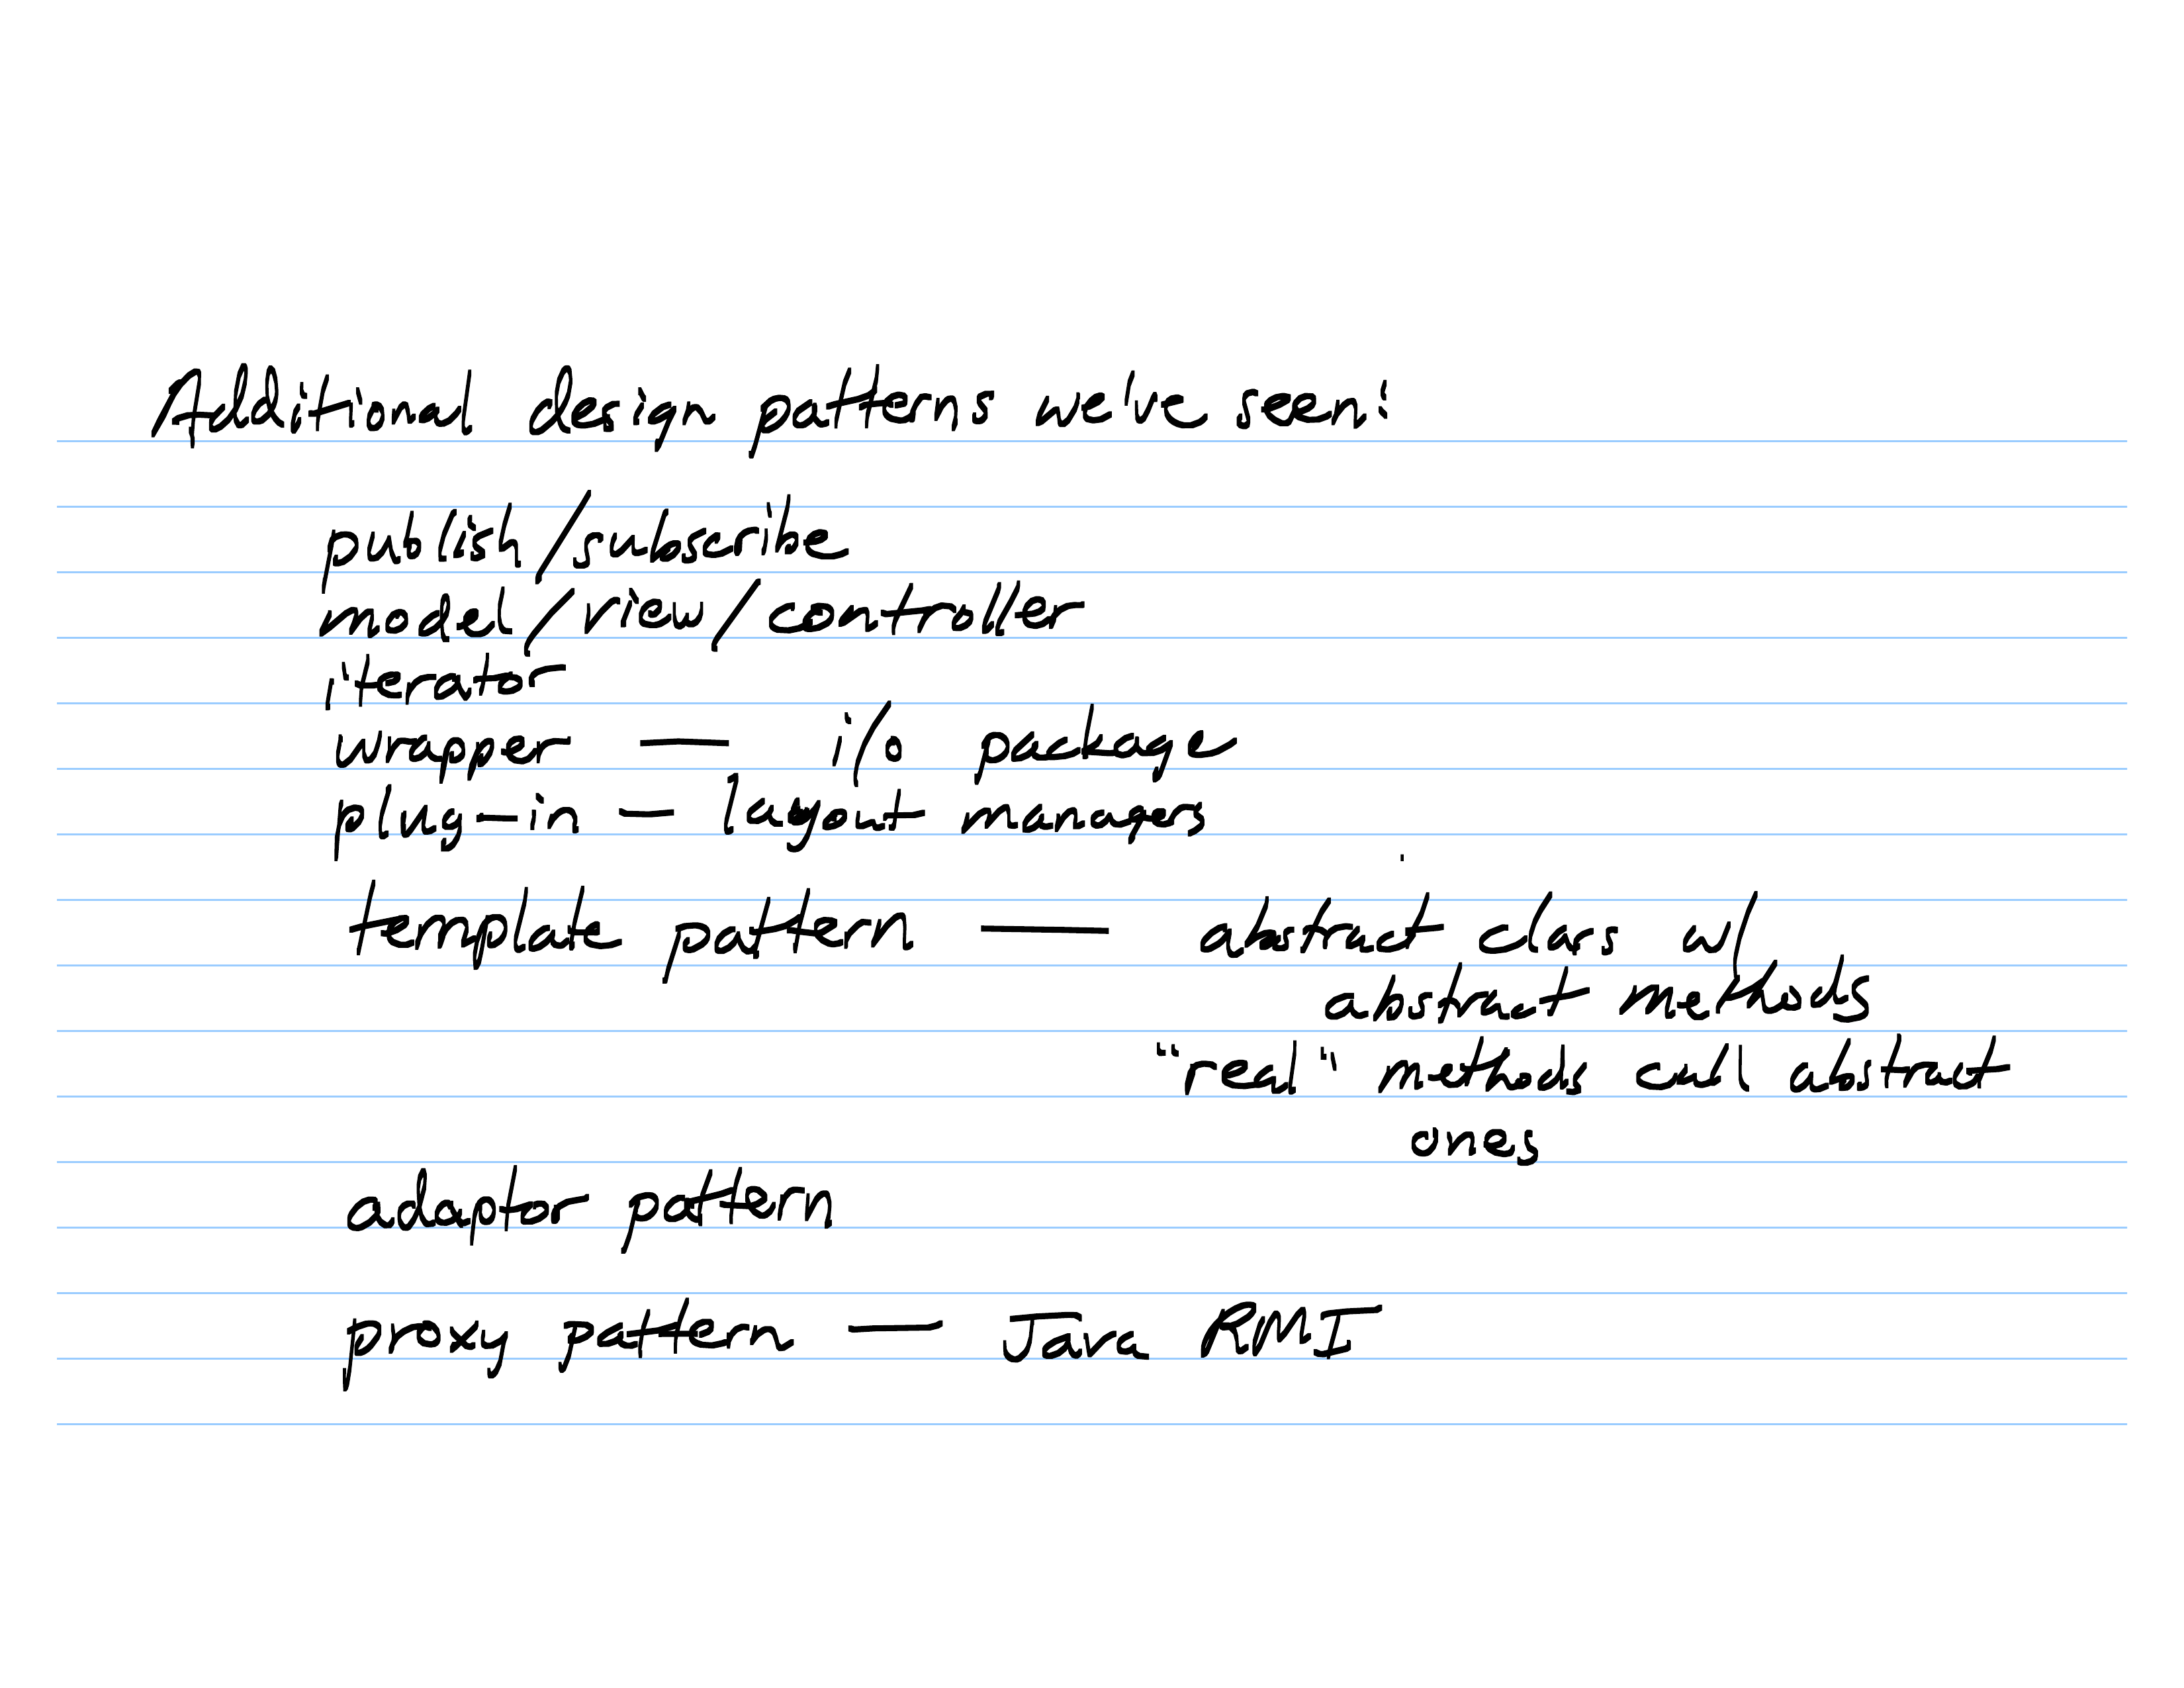 Additional design patterns we've seen:
publish/subscribe
model/view/controller
iterator
wrapper — i/o package
plug-in — layout managers
template pattern — abstract class w/
abstract methods
"real" methods call abstract
ones
adaptor pattern
proxy pattern — Java RMI